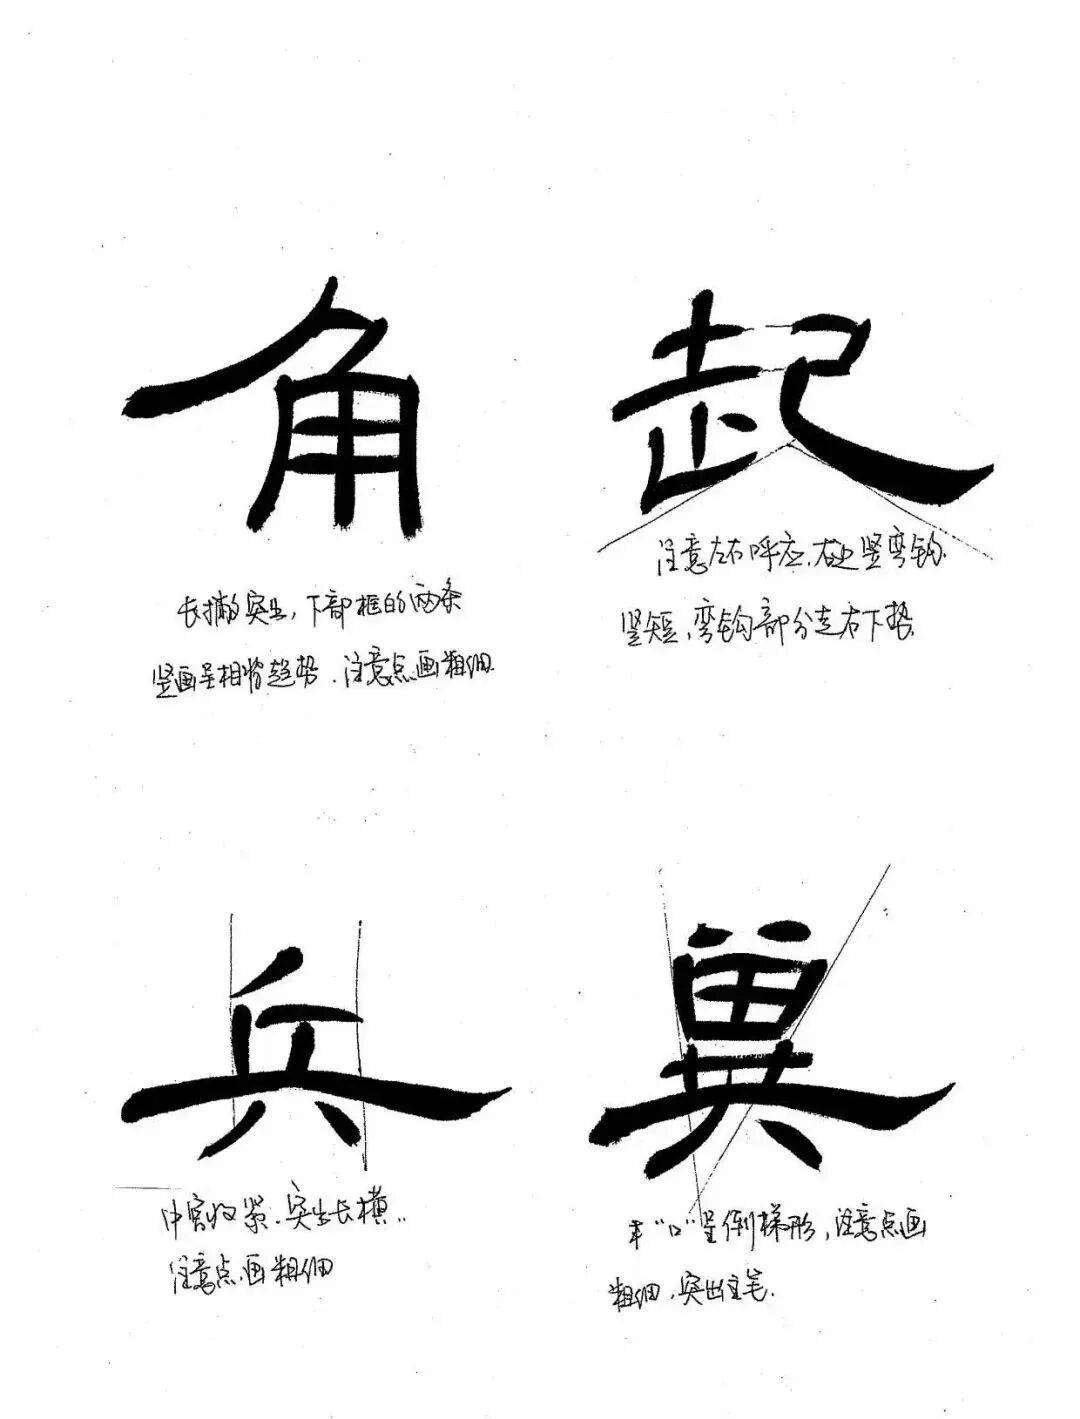 角
长撇突出，下部框的两条
竖画呈相背趋势．注意点画粗细．
起
注意左右呼应．右边竖弯钩
竖短，弯钩部分走右下势．
兵
中宫收紧．突出长横．．
注意点画粗细
糞
"口"呈倒梯形，注意点画
粗细，突出主笔．